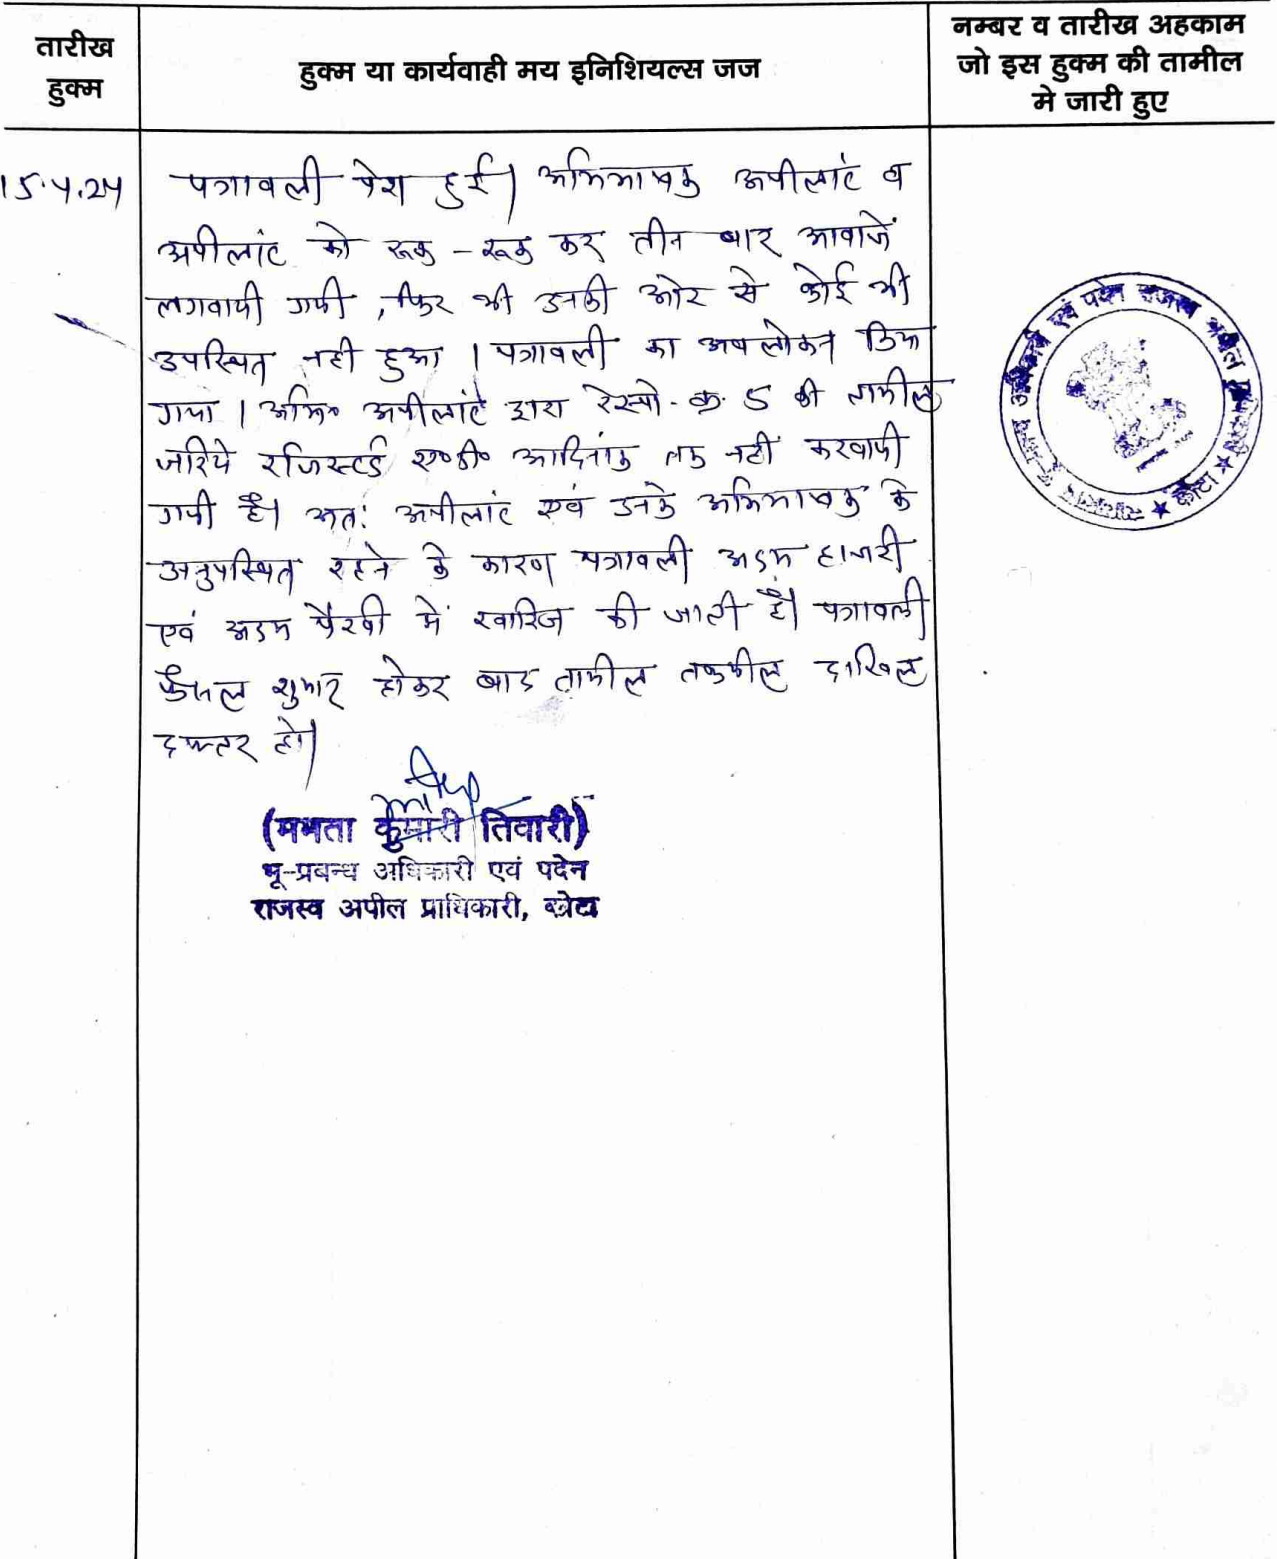 तारीख
हुक्म
हुक्म या कार्यवाही मय इनिशियल्स जज
नम्बर व तारीख अहकाम
जो इस हुक्म की तामील
मे जारी हुए
15.4.24
पत्रावली पेश हुई। अभिभाषक अपीलांट व
अपीलांट को रूक - रूक कर तीन बार आवाजें
लगवायी गयी, फिर भी उनकी ओर से कोई भी
उपस्थित नही हुआ। पत्रावली का अवलोकन किया
गया। अभि० अपीलांट द्वारा रेस्पो. क्र. 5 की तामील
जरिये रजिस्टर्ड ए०डी० आदिनांक तक नही करवायी
गयी है। अतः अपीलांट एवं उनके अभिभाषक के
अनुपस्थित रहने के कारण पत्रावली अदम हाजरी
एवं अदम पैरवी में खारिज की जाती है। पत्रावली
फैसल शुमार होकर बाद तामील तकमील दाखिल
दफ्तर हो।
(ममता कुमारी तिवारी)
भू-प्रबन्ध अधिकारी एवं पदेन
राजस्व अपील प्राधिकारी, कोटा
अधिकारी एवं पदेन राजस्व अपील
कोटा